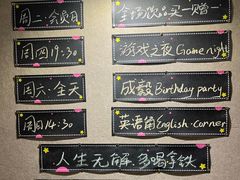 周二·会员日
全场饮品买一赠一
周四19:30
游戏之夜 Game night
周六·全天
成毅 Birthday party
周日14:30
英语角 English·Corner
人生无解 多喝拿铁